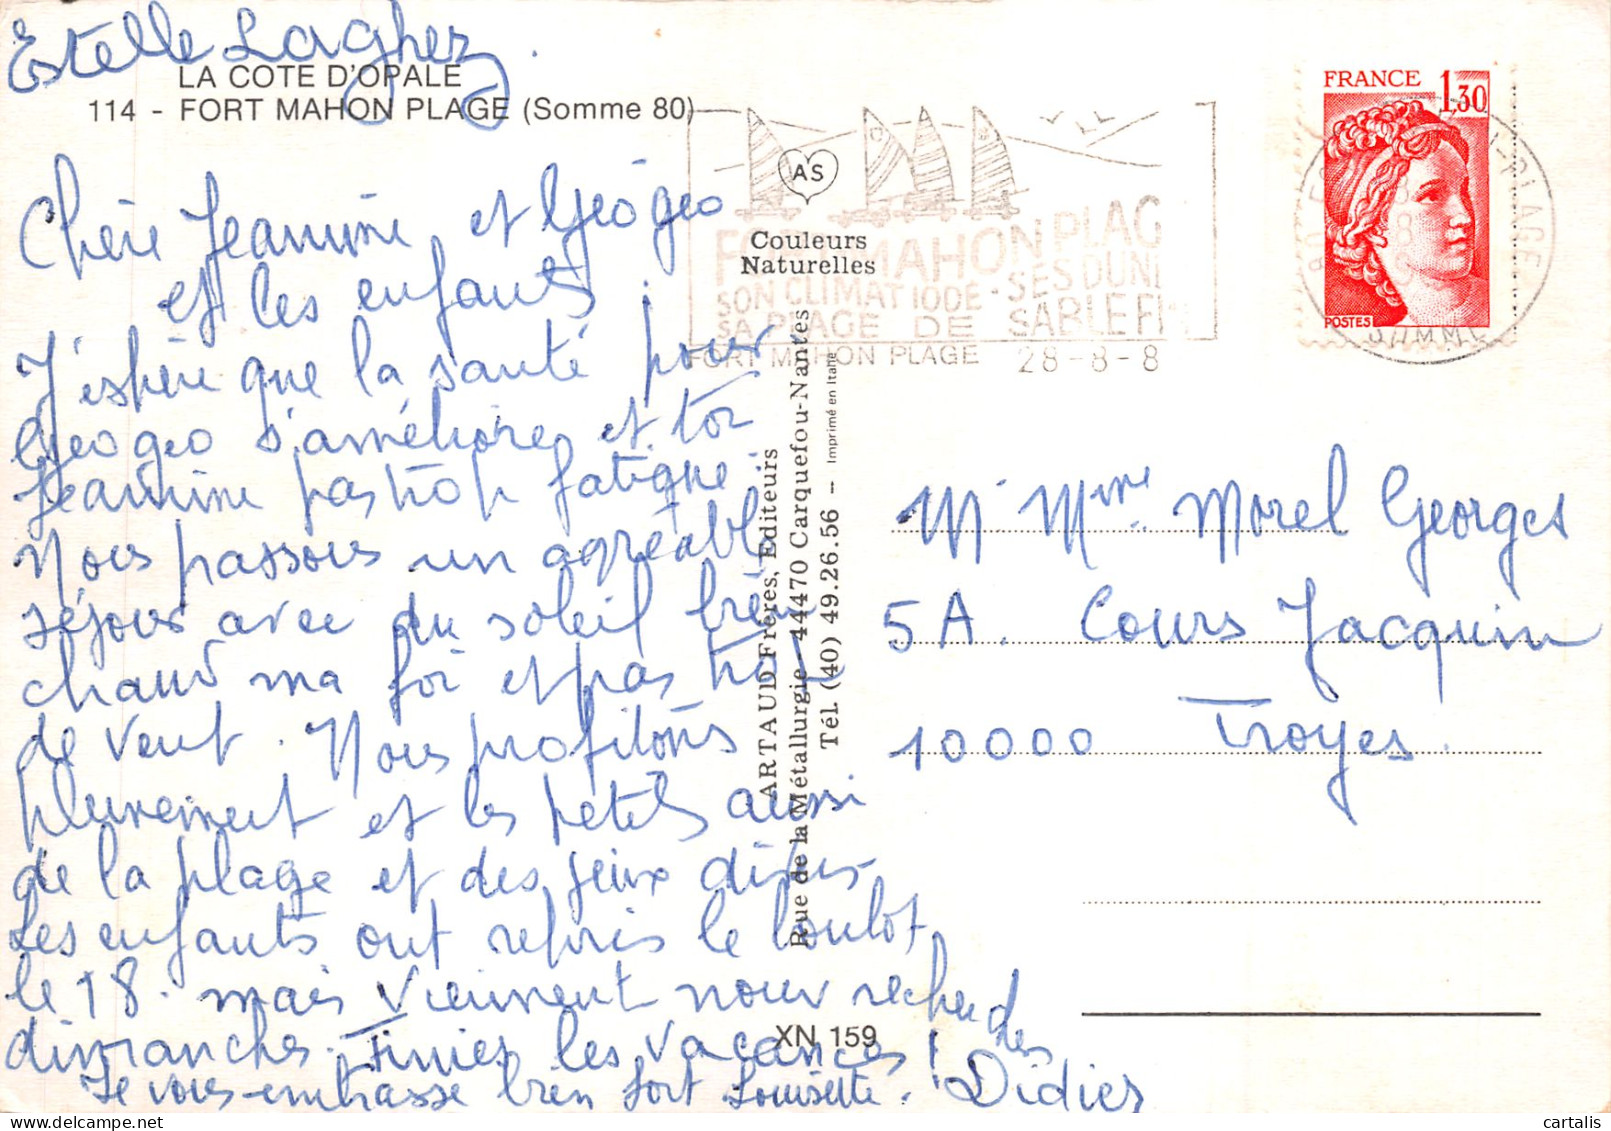 Estelle Laghez.
LA COTE D'OPALE
114 - FORT MAHON PLAGE (Somme 80)
Chère Jeannine et Géogeo
et les enfants
J'espère que la santé pour
Geogeo s'améliore et toi
Jeannine pas trop fatiguée.
Nous passons un agréable
séjour avec du soleil bien
chaud ma foi et pas trop
de vent. Nous profitons
pleinement et les petits aussi
de la plage et des jeux divers
Les enfants ont repris le boulot
le 18. mais viennent nous
dimanches. Finies les vacances !
Je vous embrasse bien fort Louisette. Didier
AS
Couleurs
Naturelles
ARTAUD Frères, Editeurs
Rue de la Métallurgie - 44470 Carquefou-Nantes
Tél. (40) 49.26.56 - Imprimé en Italie
XN 159
FORT MAHON PLAG
SON CLIMAT IODE - SES DUN
SA PLAGE DE SABLE FI
FORT MAHON PLAGE 28-8-8
FRANCE 1,30
POSTES
PLAGE
SOMME
M Mme Morel Georges
5A. Cours Jacquin
10000 Troyes.
cartalis
delcampe.net